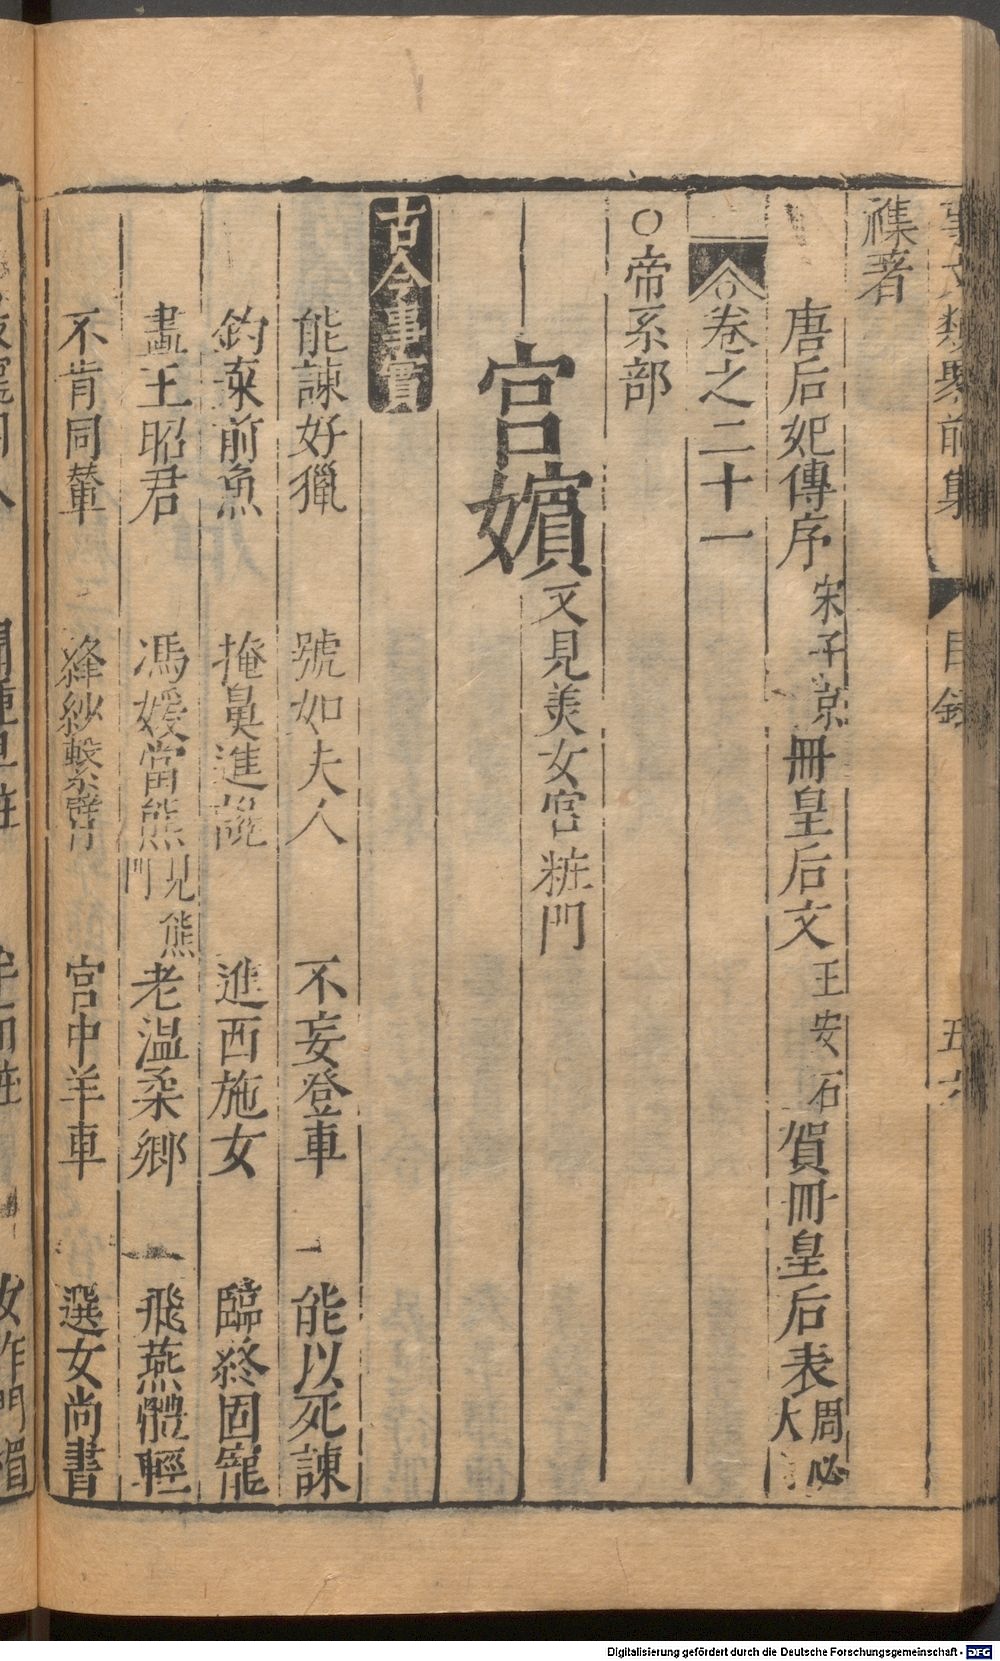 事文類聚前集 目錄 五
襍著
唐后妃傳序 宋子京 冊皇后文 王安石 賀冊皇后表 周必大
卷之二十一
○帝系部
宮嬪 又見美女宮粧門
古今事實
能諫好獵 號如夫人 不妄登車 能以死諫
釣來前魚 掩鼻進讒 進西施女 臨終固寵
畫王昭君 馮媛當熊 見熊門 老溫柔鄉 飛燕體輕
不肯同輦 絳紗繫臂 宮中羊車 選女尚書
Digitalisierung gefördert durch die Deutsche Forschungsgemeinschaft - DFG